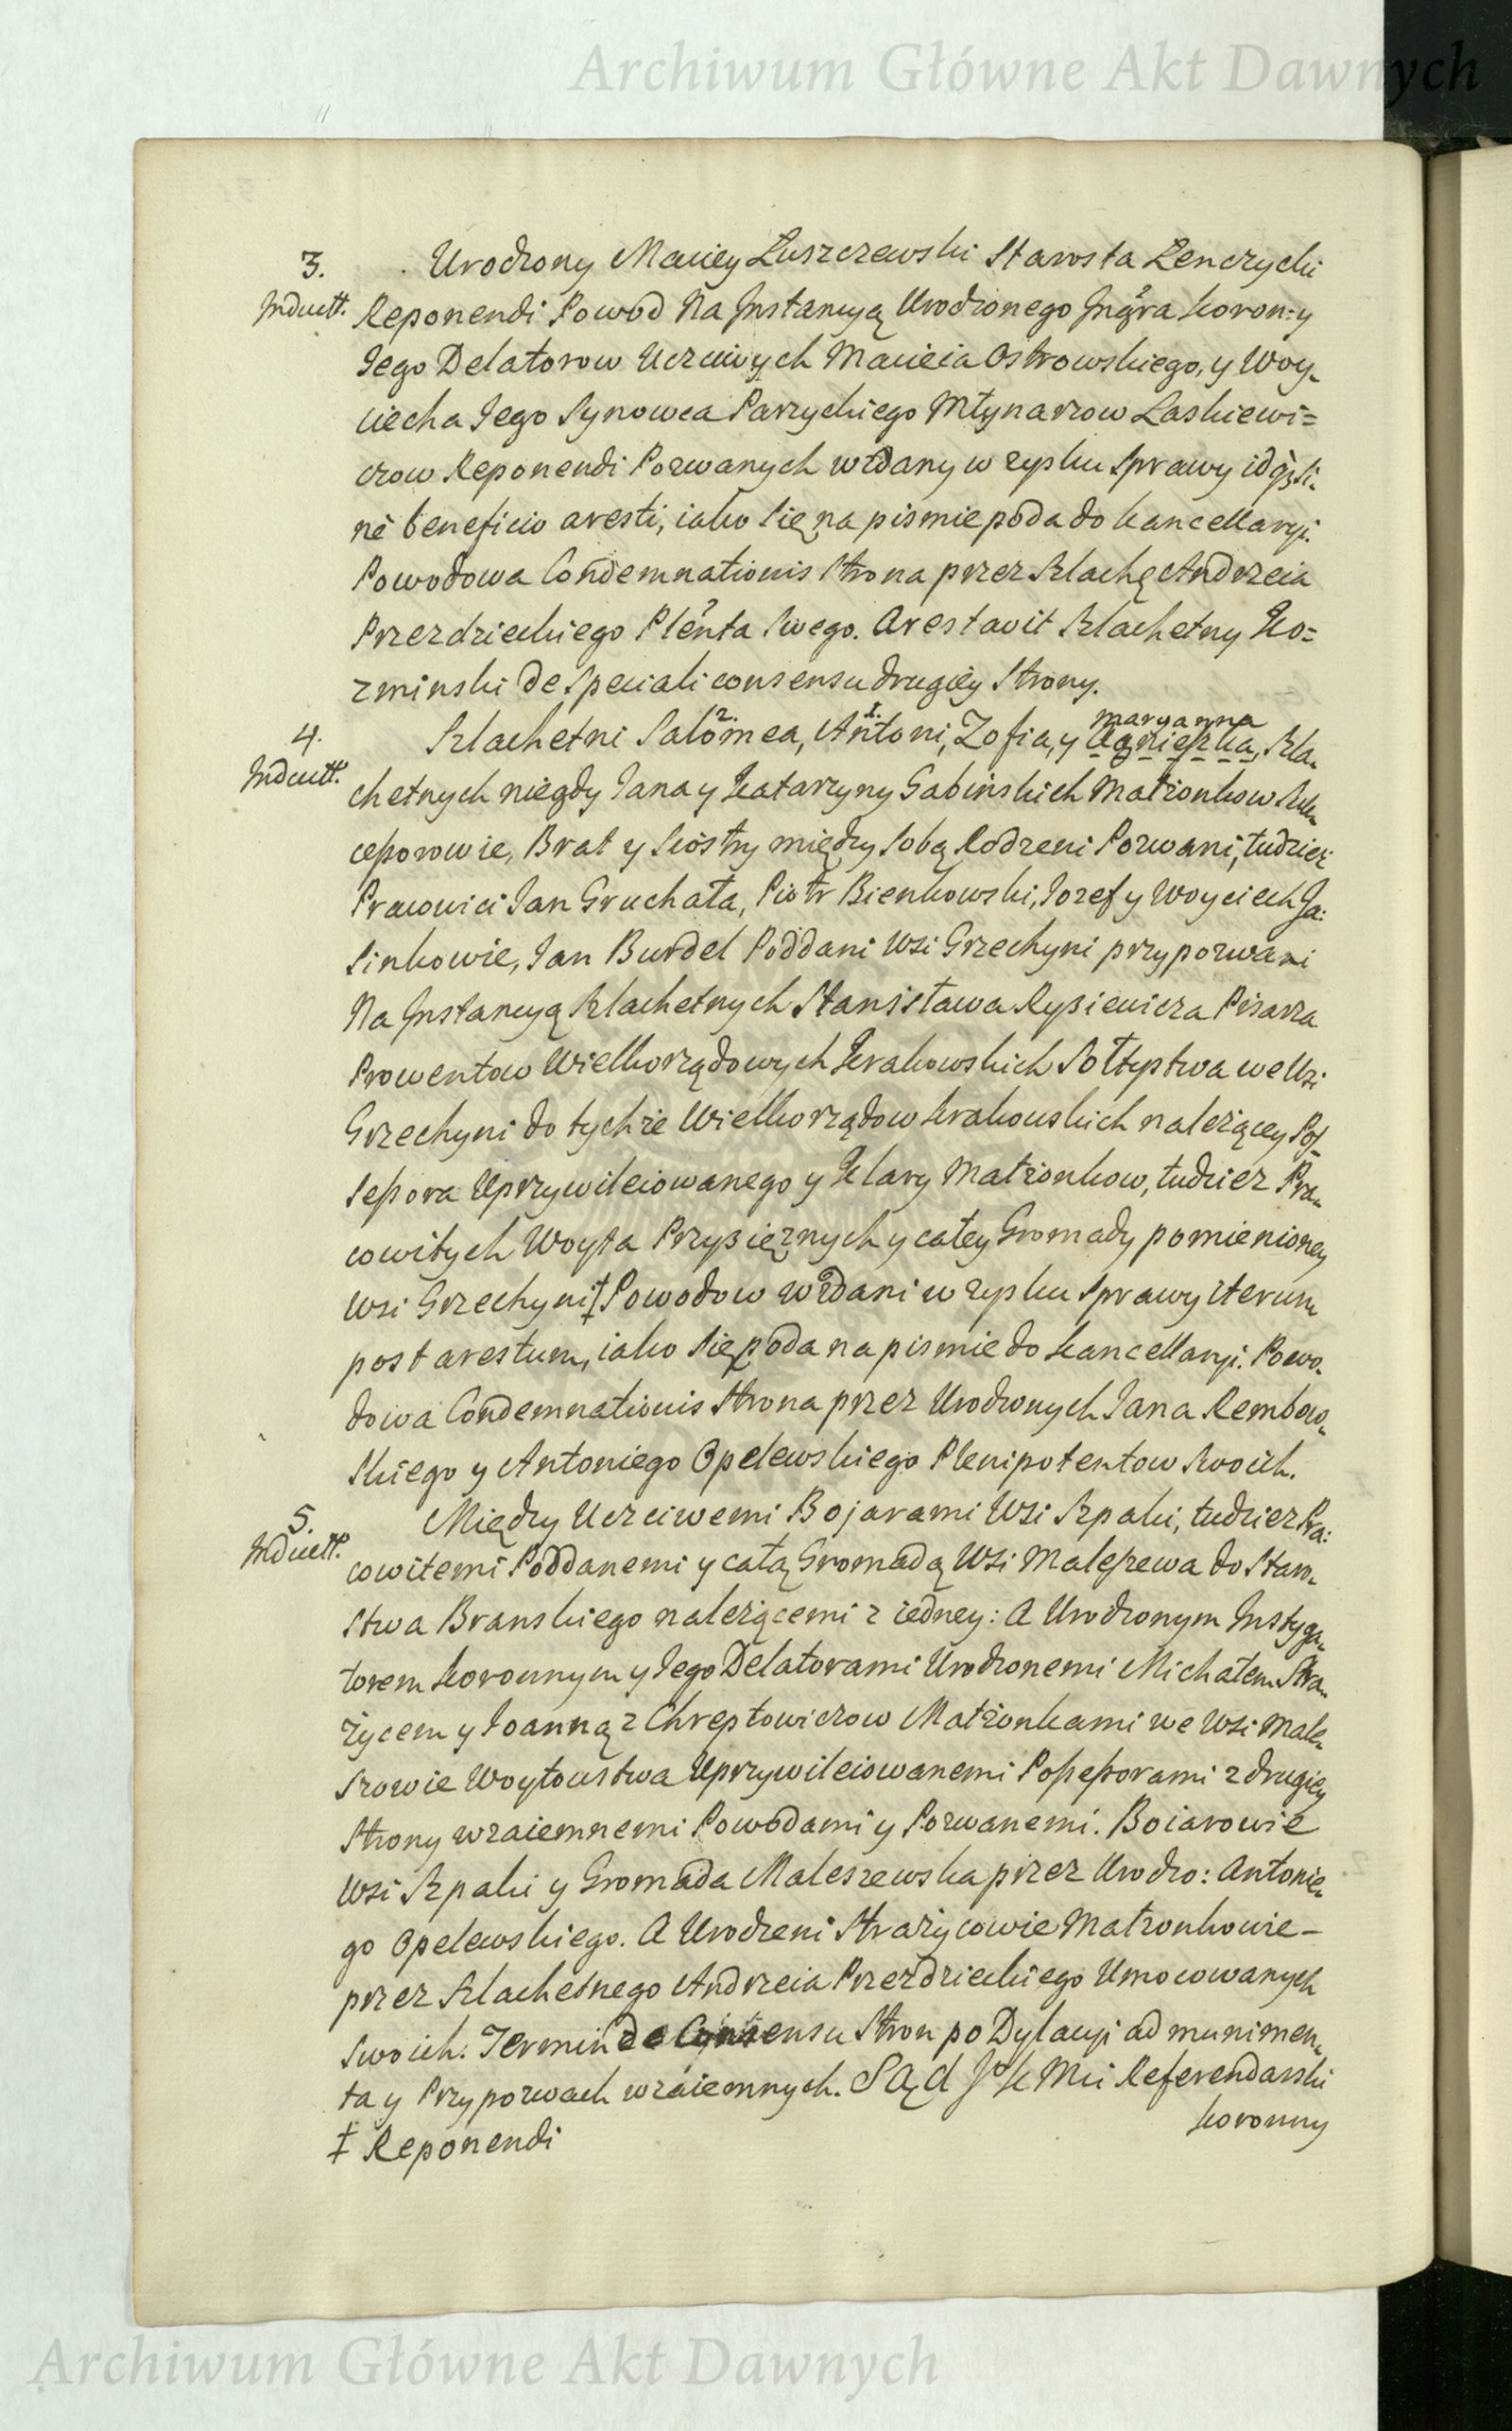 Archiwum Główne Akt Dawnych
3. Urodzony Maciey Łuszczewski Starosta Łenczycki
Inductt. Reponendi Powod Na Instancyą Urodzonego Ingra koron:y
Iego Delatorow Uczciwych Macieia Ostrowskiego, y Woy-
ciecha Iego Synowca Parzyckiego Młynarzow Laskiewi=
czow Reponendi Pozwanych wzdany w zysku Sprawy
nė beneficio aresti, iako się na pismie poda do kancellaryi.
Powodowa Condemnationis Strona przez Szlachę Andrzeia
Przezdzieckiego Plenta Swego. Arestavit Szlachetny Ko=
zminski de Speciali consensu drugiey Strony.
maryanna
4. Szlachetni Salomea, 2. Antoni, 1. Zofia, y Agnieszka, Szla-
Inductt. chetnych niegdy Iana y Katarzyny Gabinskich Małżonkow Suk-
cessorowie, Brat y Siostry między Sobą Rodzeni Pozwani, tudzież
Pracowici Ian Gruchała, Piotr Bienkowski, Iozef y Woyciech Ja:
sinkowie, Ian Burdel Poddani Wsi Grzechyni przypozwani
Na Instancyą Szlachetnych Stanisława Rysiewicza Pisarza
Prowentow Wielkorządowych Krakowskich Sołtystwa we Wsi
Grzechyni do tychże Wielkorządow krakowskich należącey Pos-
sessora Uprzywileiowanego y Klary Małżonkow, tudzież Pra-
cowitych Woyta Przysięznych y całey Gromady pomienioney
Wsi Grzechyni ‡ Powodow wzdani w zysku Sprawy iterum
post arestum, iako się poda na pismie do kancellaryi. Powo-
dowa Condemnationis Strona przez Urodzonych Iana Rembow-
skiego y Antoniego Opelewskiego Plenipotentow Swoich.
5. Między Uczciwemi Bojarami Wsi Szpaki, tudzież Pra:
Inductt. cowitemi Poddanemi y całą Gromadą Wsi Maleszewa do Staro-
stwa Branskiego należącemi z iedney: A Urodzonym Instyga-
torem koronnym y Iego Delatorami Urodzonemi Michałem Stra-
życem y Ioanną z Chreptowiczow Małżonkami we Wsi Male-
szowie Woytowstwa Uprzywileiowanemi Possessorami z drugiey
Strony wzaiemnemi Powodami y Pozwanemi. Boiarowie
Wsi Szpaki y Gromada Maleszewska przez Urodzo: Antonie-
go Opelewskiego. A Urodzeni Strażycowie Małzonkowie –
przez Szlachetnego Andrzeia Przezdzieckiego Umocowanych
Swoich. Termin de Consensu Stron po Dylacyi ad munimen-
ta y Przypozwach wzaiemnych. Sąd JoKMci Referendarski
koronny
‡ Reponendi
Archiwum Główne Akt Dawnych